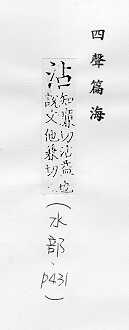 四聲篇海
沾
知廉切沾益也
說文他黏切
(水部、p431)